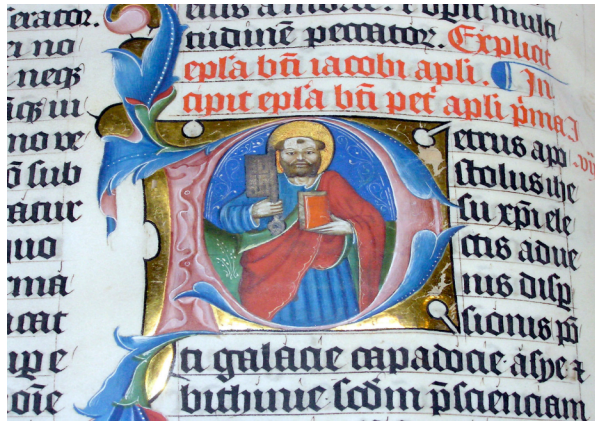 erator.
ei no
neqꝫ
no ve
ō sub
atur
quo
rma
icat
upe
oīe
eius a morte. ⁊ opit multi
tudinē peccator. Explicit
epl'a btī iacobi apli. In
cipit epl'a btī pet' apli p̄ma I
Petrus apo
stolus ihe
su xp̄i ele
ctis adue
nis disp̱
sionis pō
ti galacie capadocie asye ⁊
bithinie scdm p̄scienciam